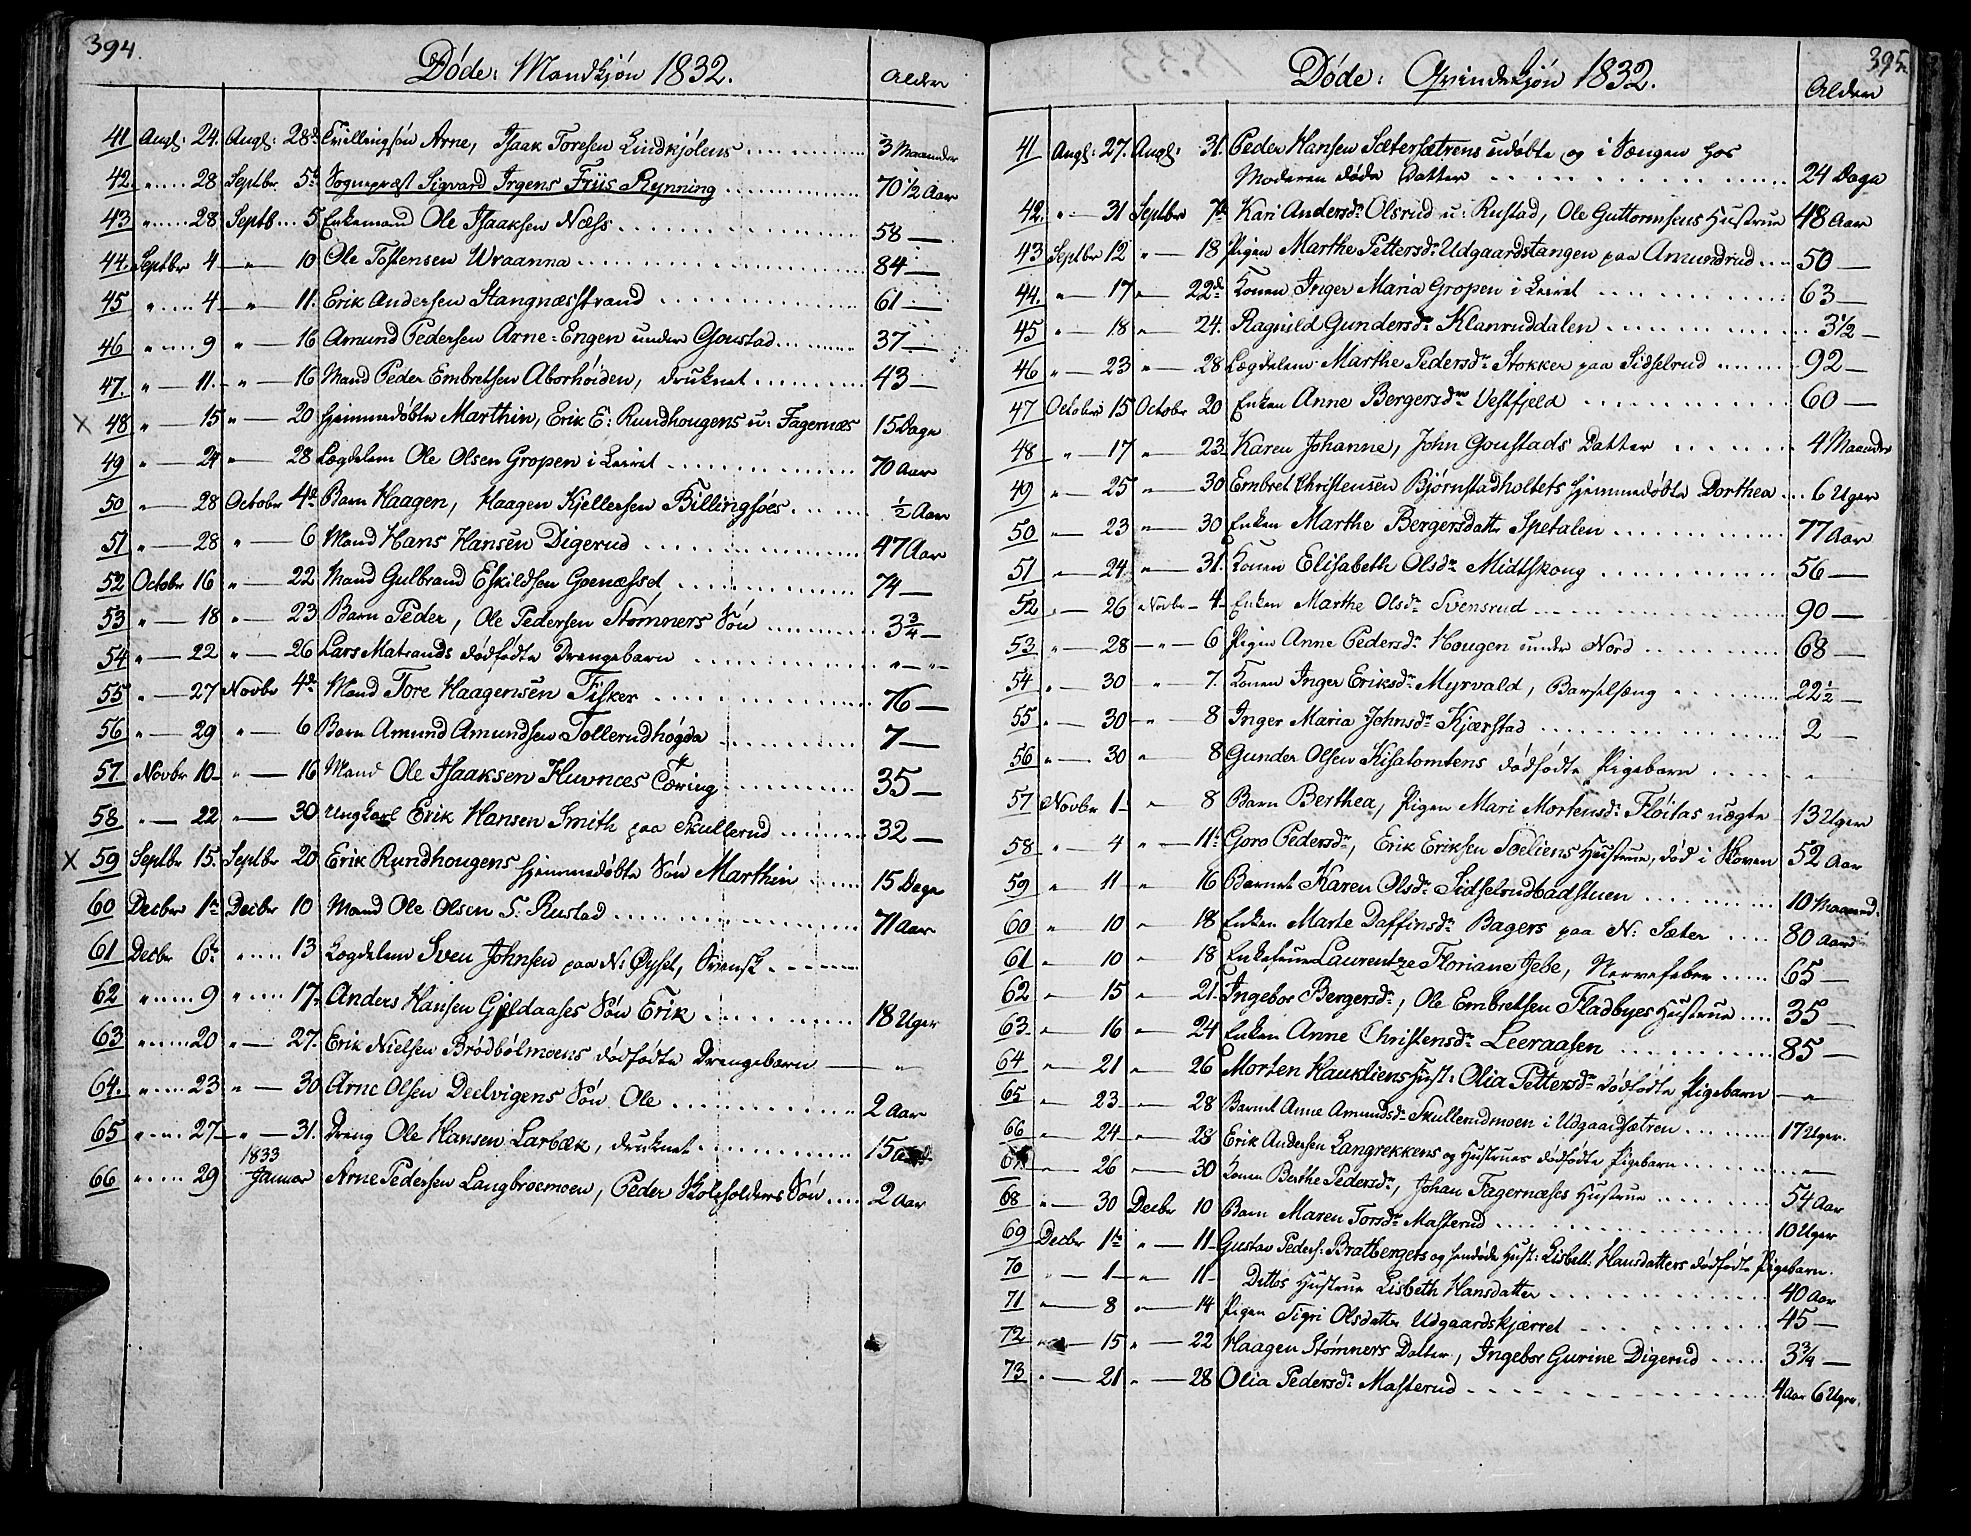 394.
Døde: Mandkjøn 1832.
Alder
41 Augl: 24. Augl: 28de Tvillingsøn Arne, Isaak Toresen Lindkjølens 3 Maaneder
42. " 28 Septbr 5te Sognepræst Sigvard Irgens Friis Rynning 70 1/2 Aar
43 " 28 Septb 5. Enkemand Ole Isaaksen Næss 58 —
44. Septbr 4 " 10 Ole Tostensen Wraanna 84 —
45 " 4 " 11. Erik Andersen Stangnæsstrand 61 —
46 " 9 " 16 Amund Pedersen Arne-Engen under Goustad 37 —
47. " 11. " 16 Mand Peder Embretsen Aborhøiden, druknet 43 —
X 48 " 15 " 20 hjemmedøbte Marthin, Erik E: Rundhougens u: Fagernæs 15 Dage
49 " 24 " 28 Lægdslem Ole Olsen Gropen i Leiret 70 Aar
50 " 28 October 4de Barn Haagen, Haagen Kjellersen Billingsøes 1/2 Aar
51 " 28 " 6 Mand Hans Hansen Digerud 47 Aar
52 Octobr 16 " 22 Mand Gulbrand Eskildsen Goenæsset 74 —
53 " 18 " 23 Barn Peder, Ole Pedersen Stømners Søn 3 3/4 —
54 " 22 " 26 Lars Matrands dødfødte Drengebarn " — "
55 " 27 Novbr 4de Mand Tore Haagensen Fisker 76 —
56 " 29 " 6 Barn Amund Amundsen Tollerudhøgda 7 —
57 Novbr 10 " 16 Mand Ole Isaaksen Huvnæs Tæring 35 —
58 " 22 " 30 Ungkarl Erik Hansen Smith paa Skullerud 32 —
X 59 Septbr 15. Septbr 20 Erik Rundhougens hjemmedøbte Søn Marthin 15 Dage
60 Decbr 1te Decbr 10 Mand Ole Olsen S. Rustad 71 Aar
61 Decbr 6te " 13 Lægdslem Sven Johnsen paa N: Øyset, Svensk
62 " 9 " 17. Anders Hansen Gjeldaases Søn Erik 18 Uger
63 " 20 " 27. Erik Nielsen Brødbølmoens dødfødte Drengebarn "
64. " 23 " 30 Arne Olsen Deelvigens Søn Ole 2 Aar
65 " 27 " 31. Dreng Ole Hansen Larbæk, druknet 15 Aar
66 " 29 1833 Januar Arne Pedersen Langbroemoen, Peder Skoleholders Søn 2 Aar
395.
Døde: Qvindekjøn 1832.
Alder
41 Augl: 27. Augl: 31. Peder Hansen Sætersætrens udøbte og i Sængen hos
Moderen døde Datter 24 Dage
42. " 31 Septbr 7de Kari Andersdr Olsrud u: Rustad, Ole Guttormsens Hustrue 48 Aar
43 Septbr 12 " 18 Pigen Marthe Pettersdr Udgaardstangen paa Amundrud 50 —
44. " 17 " 22de Konen Inger Maria Gropen i Leiret 63 —
45 " 18 " 24. Ragnild Gundersdr Klanruddalen 3 1/2 —
46 " 23 " 28 Lægdslem Marthe Pedersdr Stokker paa Sidselrud 92 —
47 October 15 October 20 Enken Anne Bergersdr Vestfjeld 60 —
48 " 17 " 23 Karen Johanne, John Goustads Datter 4 Maander
49 " 25 " 30 Embret Christensen Bjørnstadholtets hjemmedøbte Dorthea 6 Uger
50 " 23 " 30 Enken Marthe Bergersdatter Spetalen 77 Aar
51 " 24 " 31. Konen Elisabeth Olsdr Midtskong 56 —
52 " 26 Novbr 4 Enken Marthe Olsdr Svensrud 90 —
53 " 28 " 6 Pigen Anne Pedersdr Hougen under Nord 68 —
54 " 30 " 7. Konen Inger Eriksdr Myrvald, Barselsæng 22 1/2 —
55 " 30 " 8 Inger Maria Johnsdr Kjærstad 2 —
56 " 30 " 8 Gunder Olsen Kisatomtens dødfødte Pigebarn "
57 Novbr 1 " 8 Barn Berthea, Pigen Mari Mortensdr Fløitas uægte 13 Uger
58 " 4 " 11te Goro Pedersdr, Erik Eriksen Soeliens Hustrue, død i Skoven 52 Aar
59 " 11 " 16 Barnet Karen Olsdr Sidselrudbadstuen 10 Maaned:
60 " 10 " 18 Enken Marte Daffinsdr Bagers paa N: Sæter 80 Aar
61 " 10 " 18 Enkefrue Laurentze Floriane Jebe, Nervefeber 65 —
62 " 15 " 21. Ingebor Bergersdr, Ole Embretsen Fladbyes Hustrue 35 —
63. " 16 " 24 Enken Anne Christensdr Leeraasen 85 —
64 " 21 " 26 Morten Haukliens Hust: Olia Pettersdr dødfødte Pigebarn "
65 " 23 " 28 Barnet Anne Amundsdr Skullerudmoen i Udgaardsætren 17 Uger.
66 " 24 " 28 Erik Andersen Langrekkens og Hustrues dødfødte Pigebarn "
67 " 26 " 30 Konen Berthe Pedersdr, Johan Fagernæses Hustrue 54 Aar
68 " 30 Decbr 10 Barn Maren Torsdr Masterud 10 Uger
69 Decbr 1te " 11 Gustav Peders: Bratbergets og hendøde Hust: Lisbeth Hansdatters dødfødte Pigebarn.
70 " 1 " 11 Dittos Hustrue Lisbeth Hansdatter 40 Aar
71 " 8 " 14 Pigen Sigri Olsdatter Udgaardskjærret 45 —
72 " 15 " 22 Haagen Stømners Datter, Ingebor Gurine Digerud 3 3/4 —
73 " 21 " 28 Olia Pedersdr Masterud 4 Aar 6 Uger.